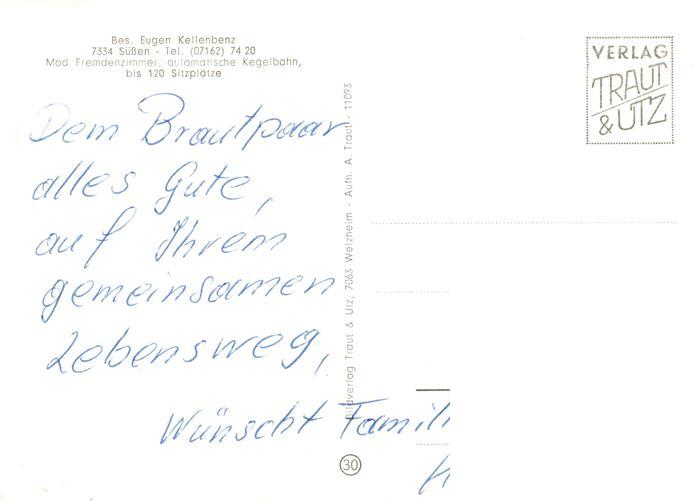 Bes. Eugen Kellenbenz
7334 Süßen - Tel. (07162) 74 20
Mod. Fremdenzimmer, automatische Kegelbahn,
bis 120 Sitzplätze
Dem Brautpaar
alles Gute,
auf Ihrem
gemeinsamen
Lebensweg,
Wünscht Famili
Bildverlag Traut & Utz, 7063 Welzheim - Aufn. A. Traut - 11093
30
VERLAG
TRAUT
& UTZ